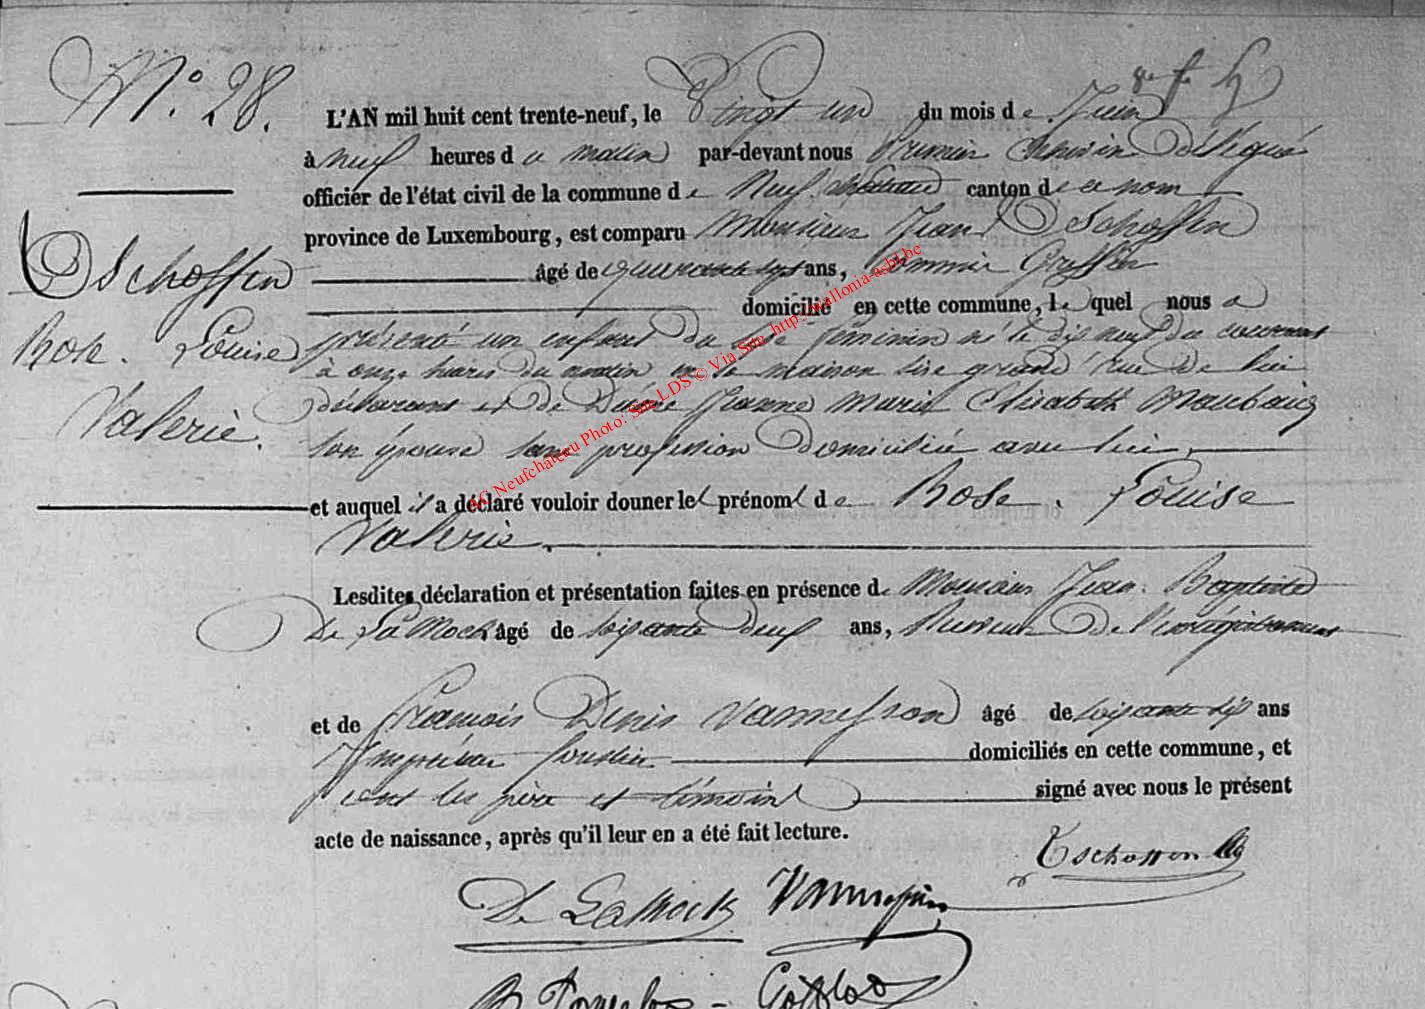 N° 28.
L'AN mil huit cent trente-neuf, le Vingt un du mois de Juin
à neuf heures du matin par-devant nous Premier Echevin Délégué
officier de l'état civil de la commune de Neufchateau canton de ce nom
province de Luxembourg, est comparu Monsieur Jean Dschoffen
âgé de quarante sept ans, Commis Greffier
domicilié en cette commune, lequel nous a
présenté un enfant du sexe féminin né le dix neuf du courant
à onze heures du matin en sa maison sise grand'rue de lui
déclarant et de Dame Jeanne Marie Elisabeth
son épouse sans profession Domiciliée avec lui,
et auquel il a déclaré vouloir donner les prénoms de Rose. Louise
Valerie.
Lesdites déclaration et présentation faites en présence de Monsieur Jean. Baptiste
De La Mock âgé de soixante neuf ans, Receveur De l'enregistrement
et de François Denis Vannesson âgé de soixante dix ans
domiciliés en cette commune, et
ont les père et témoins signé avec nous le présent
acte de naissance, après qu'il leur en a été fait lecture.
Dschoffen
Rose. Louise
Valerie.
Tschoffen
De LaMock Vannesson
AC Neufchateau Photo: Site LDS © Via Site http://wallonia-asbl.be